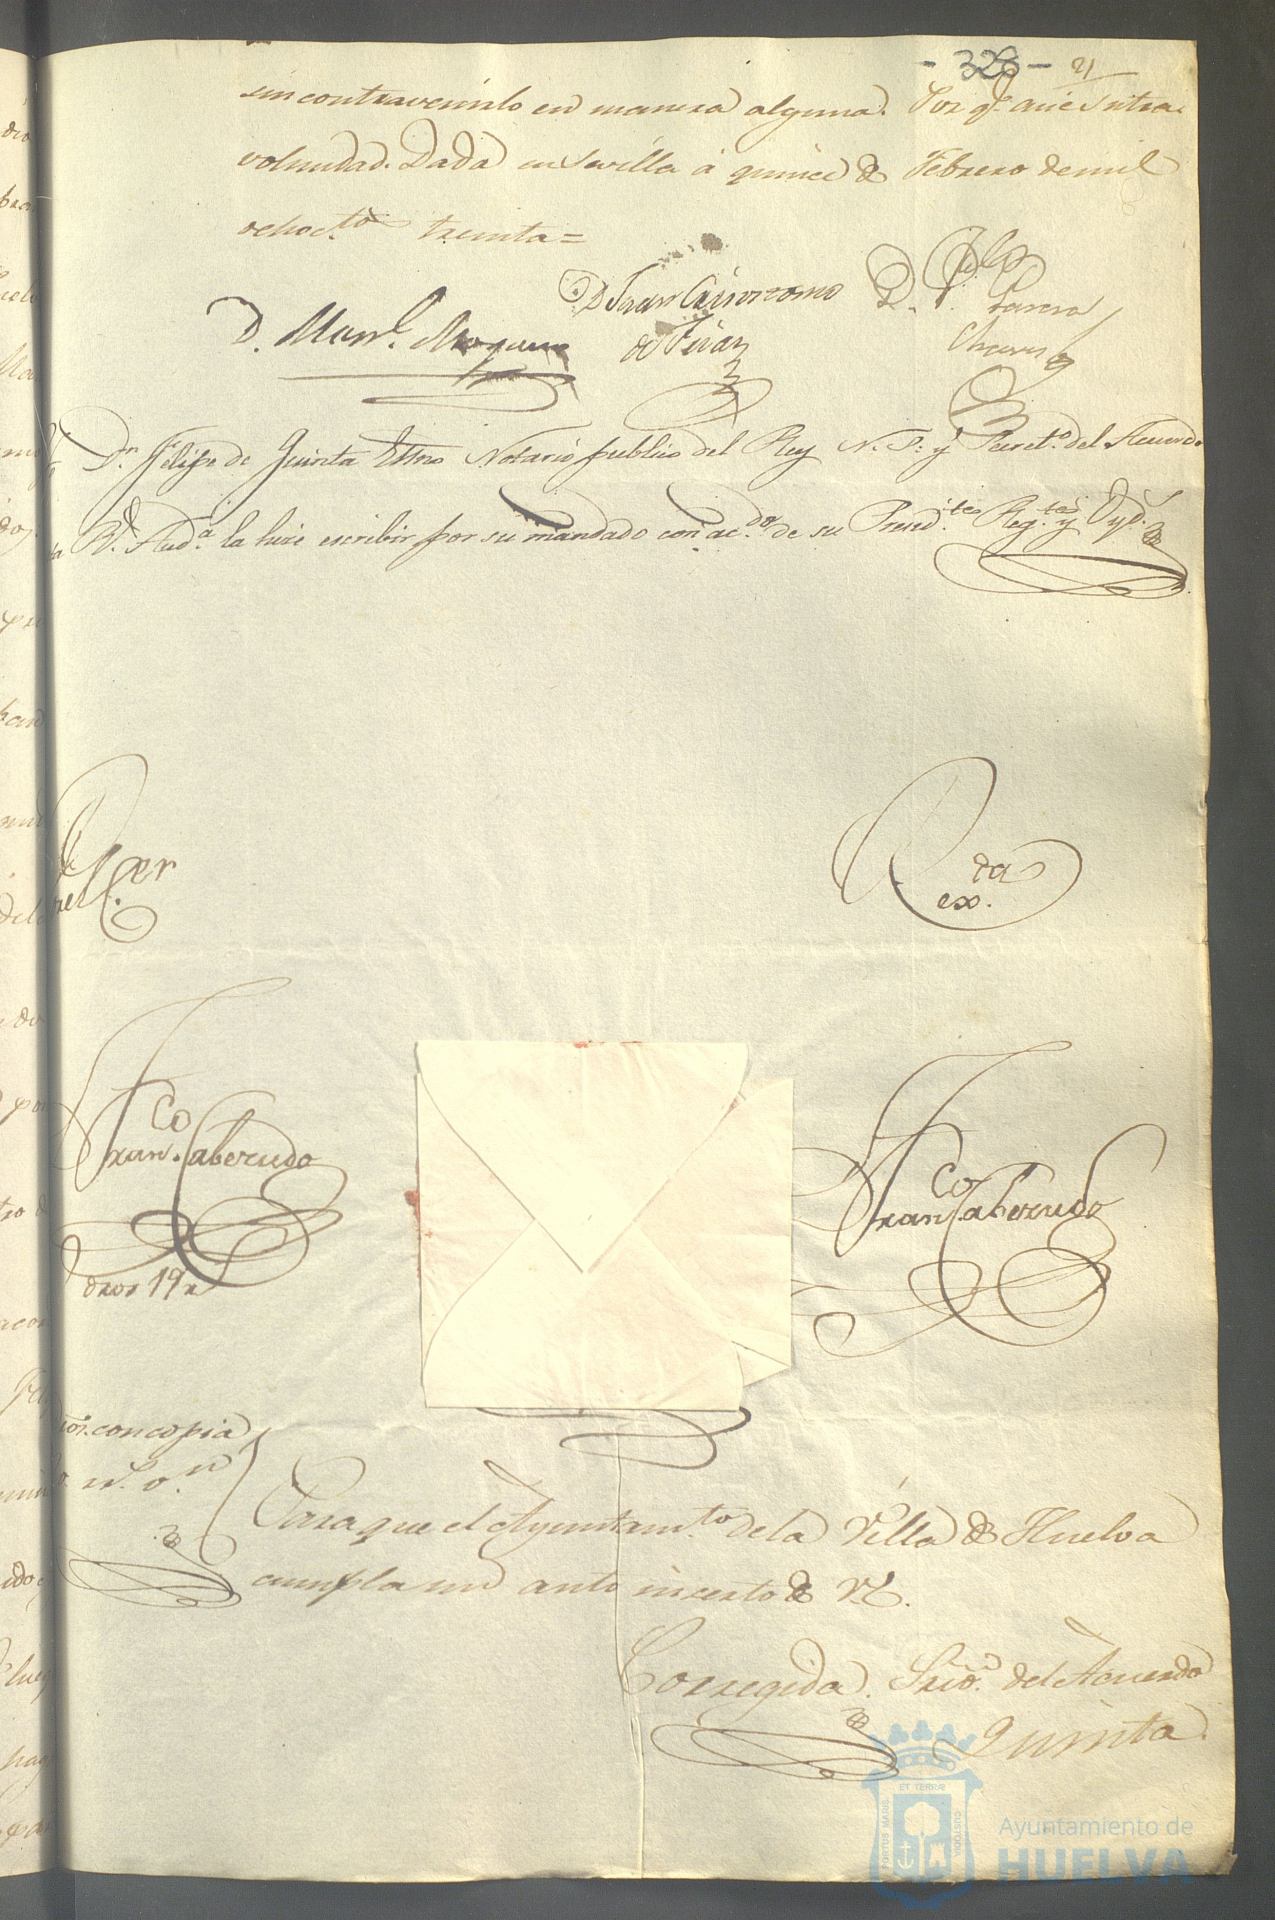 - 328 - 21
sin contravenirlo en manera alguna. Por q.e asi es ntra.
voluntad. Dada en Sevilla á quince de Febrero de mil
ochoc.tos treinta =
D. Man.l
D. Juan Geronimo
de
D. Garcia
D.n Felipe de Quinta Essno Notario publico del Rey N. S.r y Secret.o del Acuerdo
R.l Aud.a la hice escribir por su mandado con ac.do de su Presid.te Reg.te y Oyd.s
Rda
ex.
Fran.co Caberudo
dros 19 r
Fran.co Caberudo
con copia
Para que el Ayuntam.to de la Villa de Huelva
cumpla un auto inserto de VE.
Corregida. Srio. del Acuerdo
Quinta
PORTUS MARIS ET TERRÆ CUSTODIA
Ayuntamiento de
HUELVA